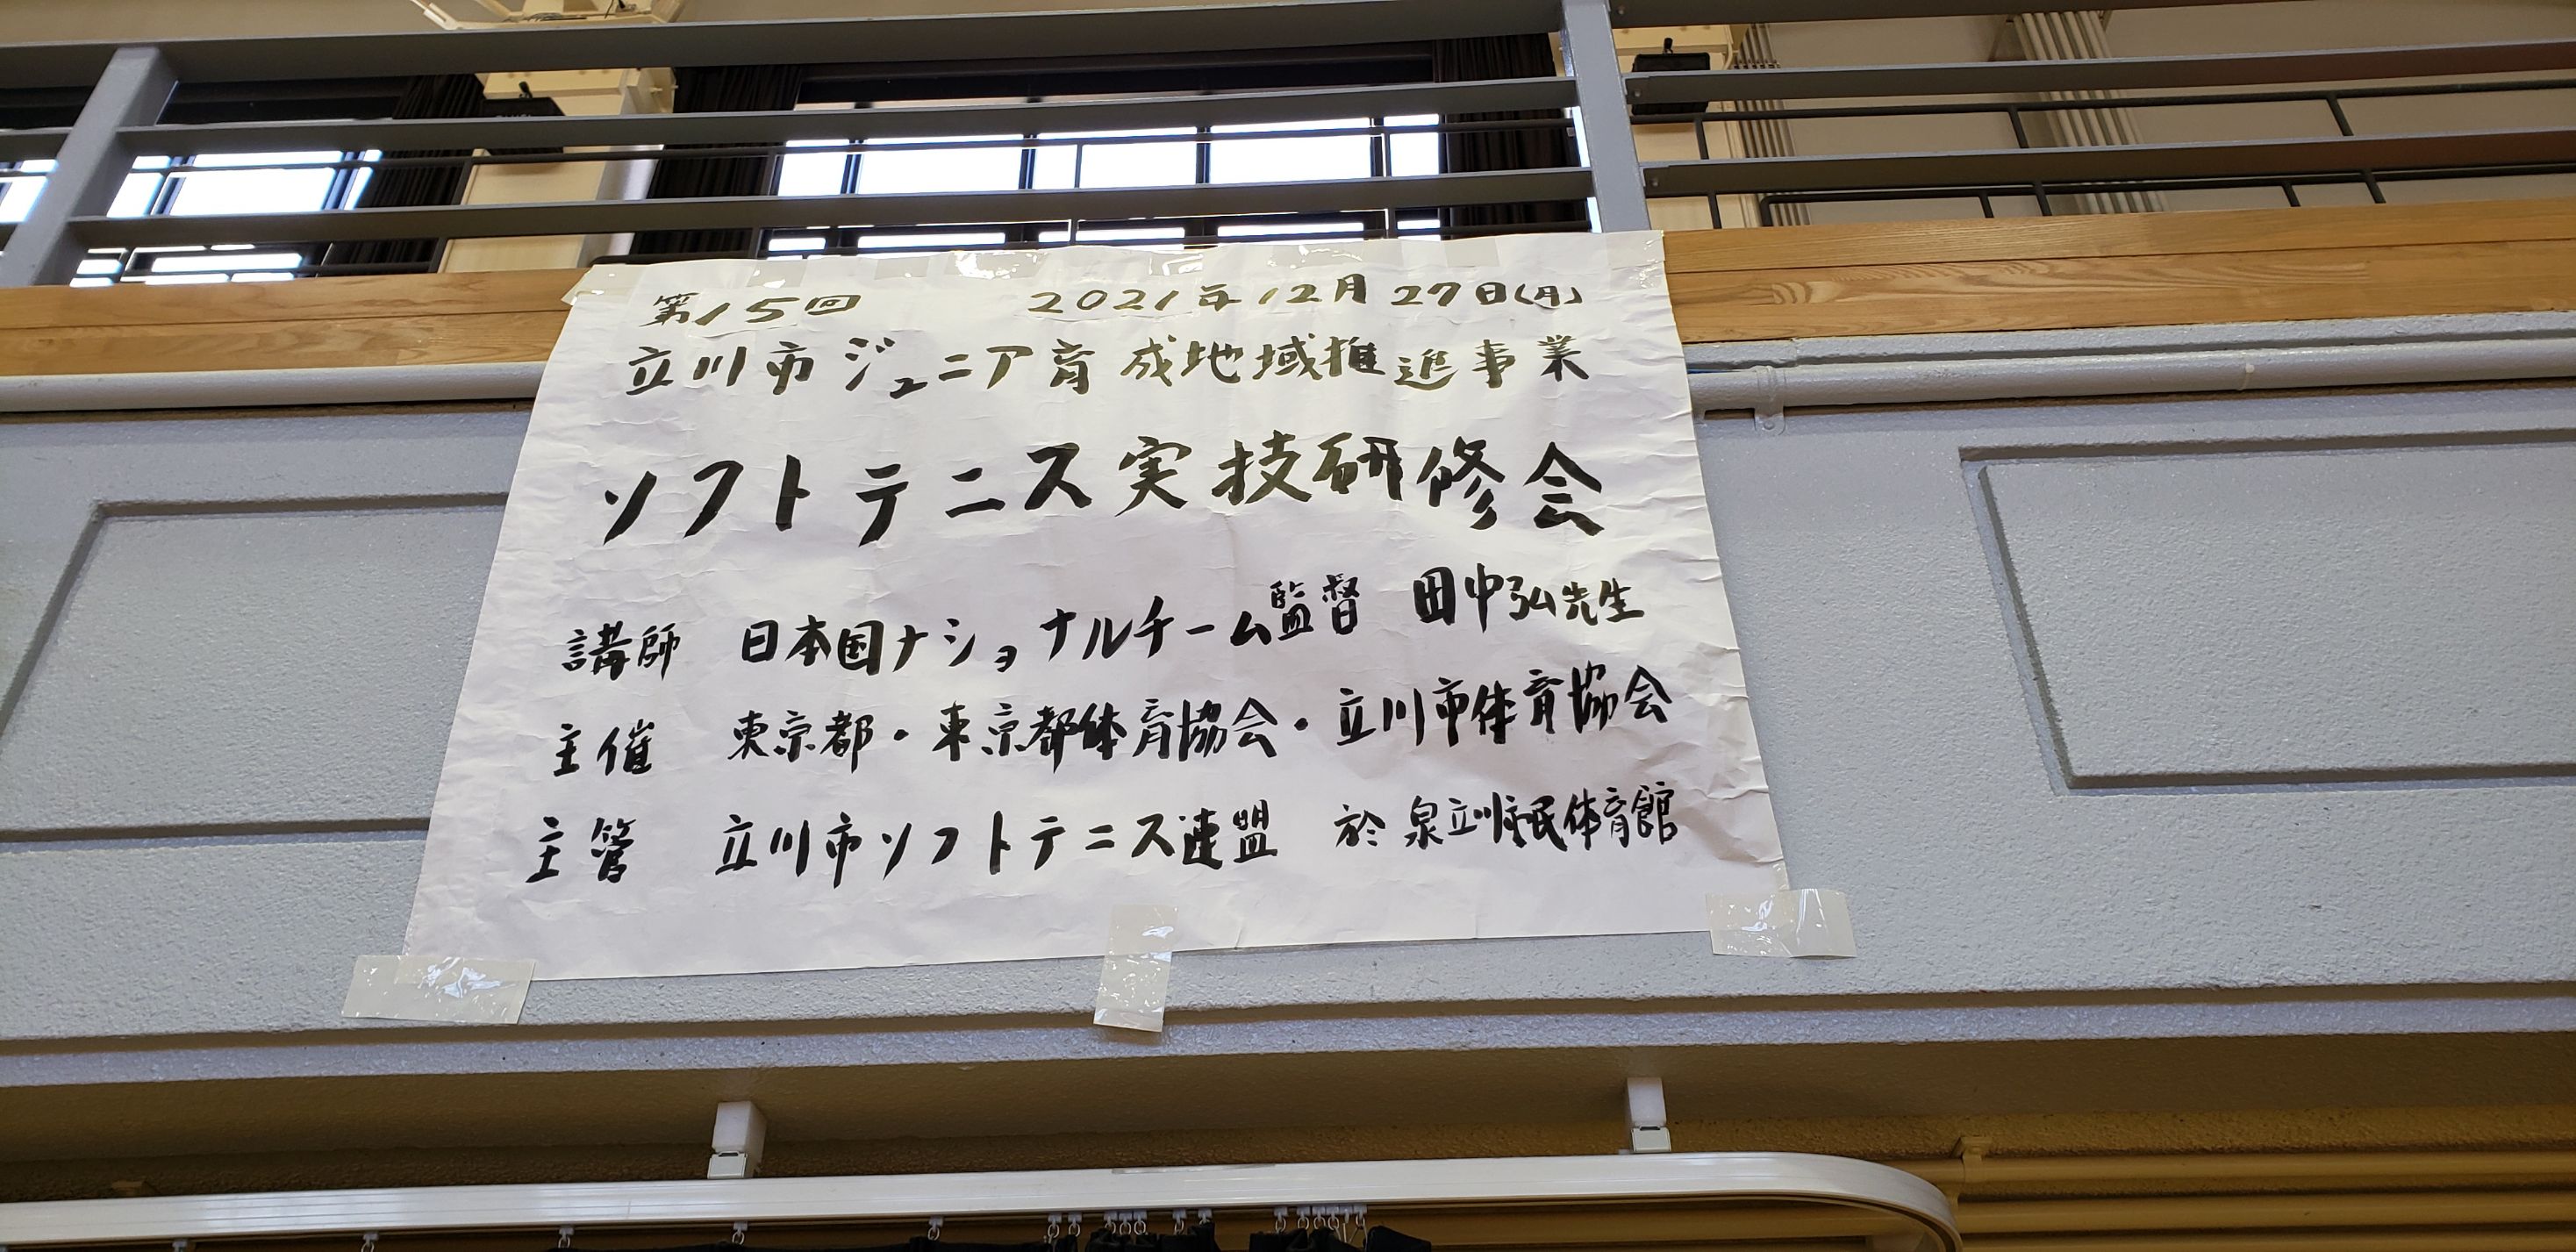 第15回　2021年12月27日(月)
立川市ジュニア育成地域推進事業
ソフトテニス実技研修会
講師　日本国ナショナルチーム監督　田中弘先生
主催　東京都・東京都体育協会・立川市体育協会
主管　立川市ソフトテニス連盟　於 泉立川市民体育館